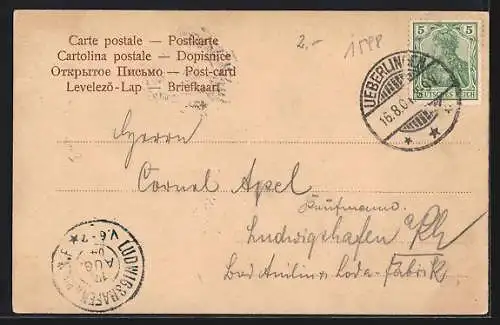 Carte postale — Postkarte
Cartolina postale — Dopisnice
Открытое Письмо — Post-card
Levelező-Lap — Briefkaart
2.-
5 5
DEUTSCHES REICH
UEBERLINGEN
16.8.0
Herrn
Cornal Apel
Kaufmann
Ludwigshafen a/Rh
Bad Anilin u Soda-Fabrik
LUDWIGSHAFEN
V. 6-7
17
AUG.
04